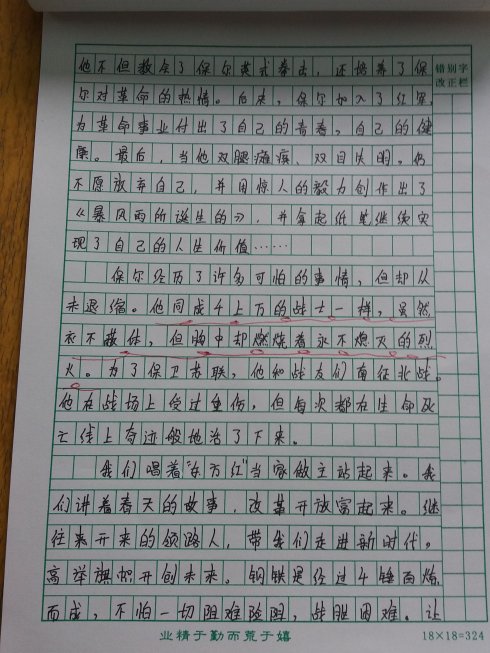 他不但教会了保尔英式拳击，还培养了保
错别字
改正栏
尔对革命的热情。后来，保尔加入了红军，
为革命事业付出了自己的青春，自己的健
康。最后，当他双腿瘫痪、双目失明，仍
不愿放弃自己，并用惊人的毅力创作出了
《暴风雨所诞生的》，并拿起纸笔继续实
现了自己的人生价值……
保尔经历了许多可怕的事情，但却从
未退缩。他同成千上万的战士一样，虽然
衣不蔽体，但胸中却燃烧着永不熄灭的烈
火。为了保卫苏联，他和战友们南征北战。
他在战场上受过重伤，但每次都在生命死
亡线上奇迹般地活了下来。
我们唱着“东方红”当家做主站起来。我
们讲着春天的故事，改革开放富起来。继
往来开来的领路人，带我们走进新时代。
高举旗帜开创未来。钢铁是经过千锤百炼
而成，不怕一切阻难险阻，战胜困难。让
业精于勤而荒于嬉
18×18=324